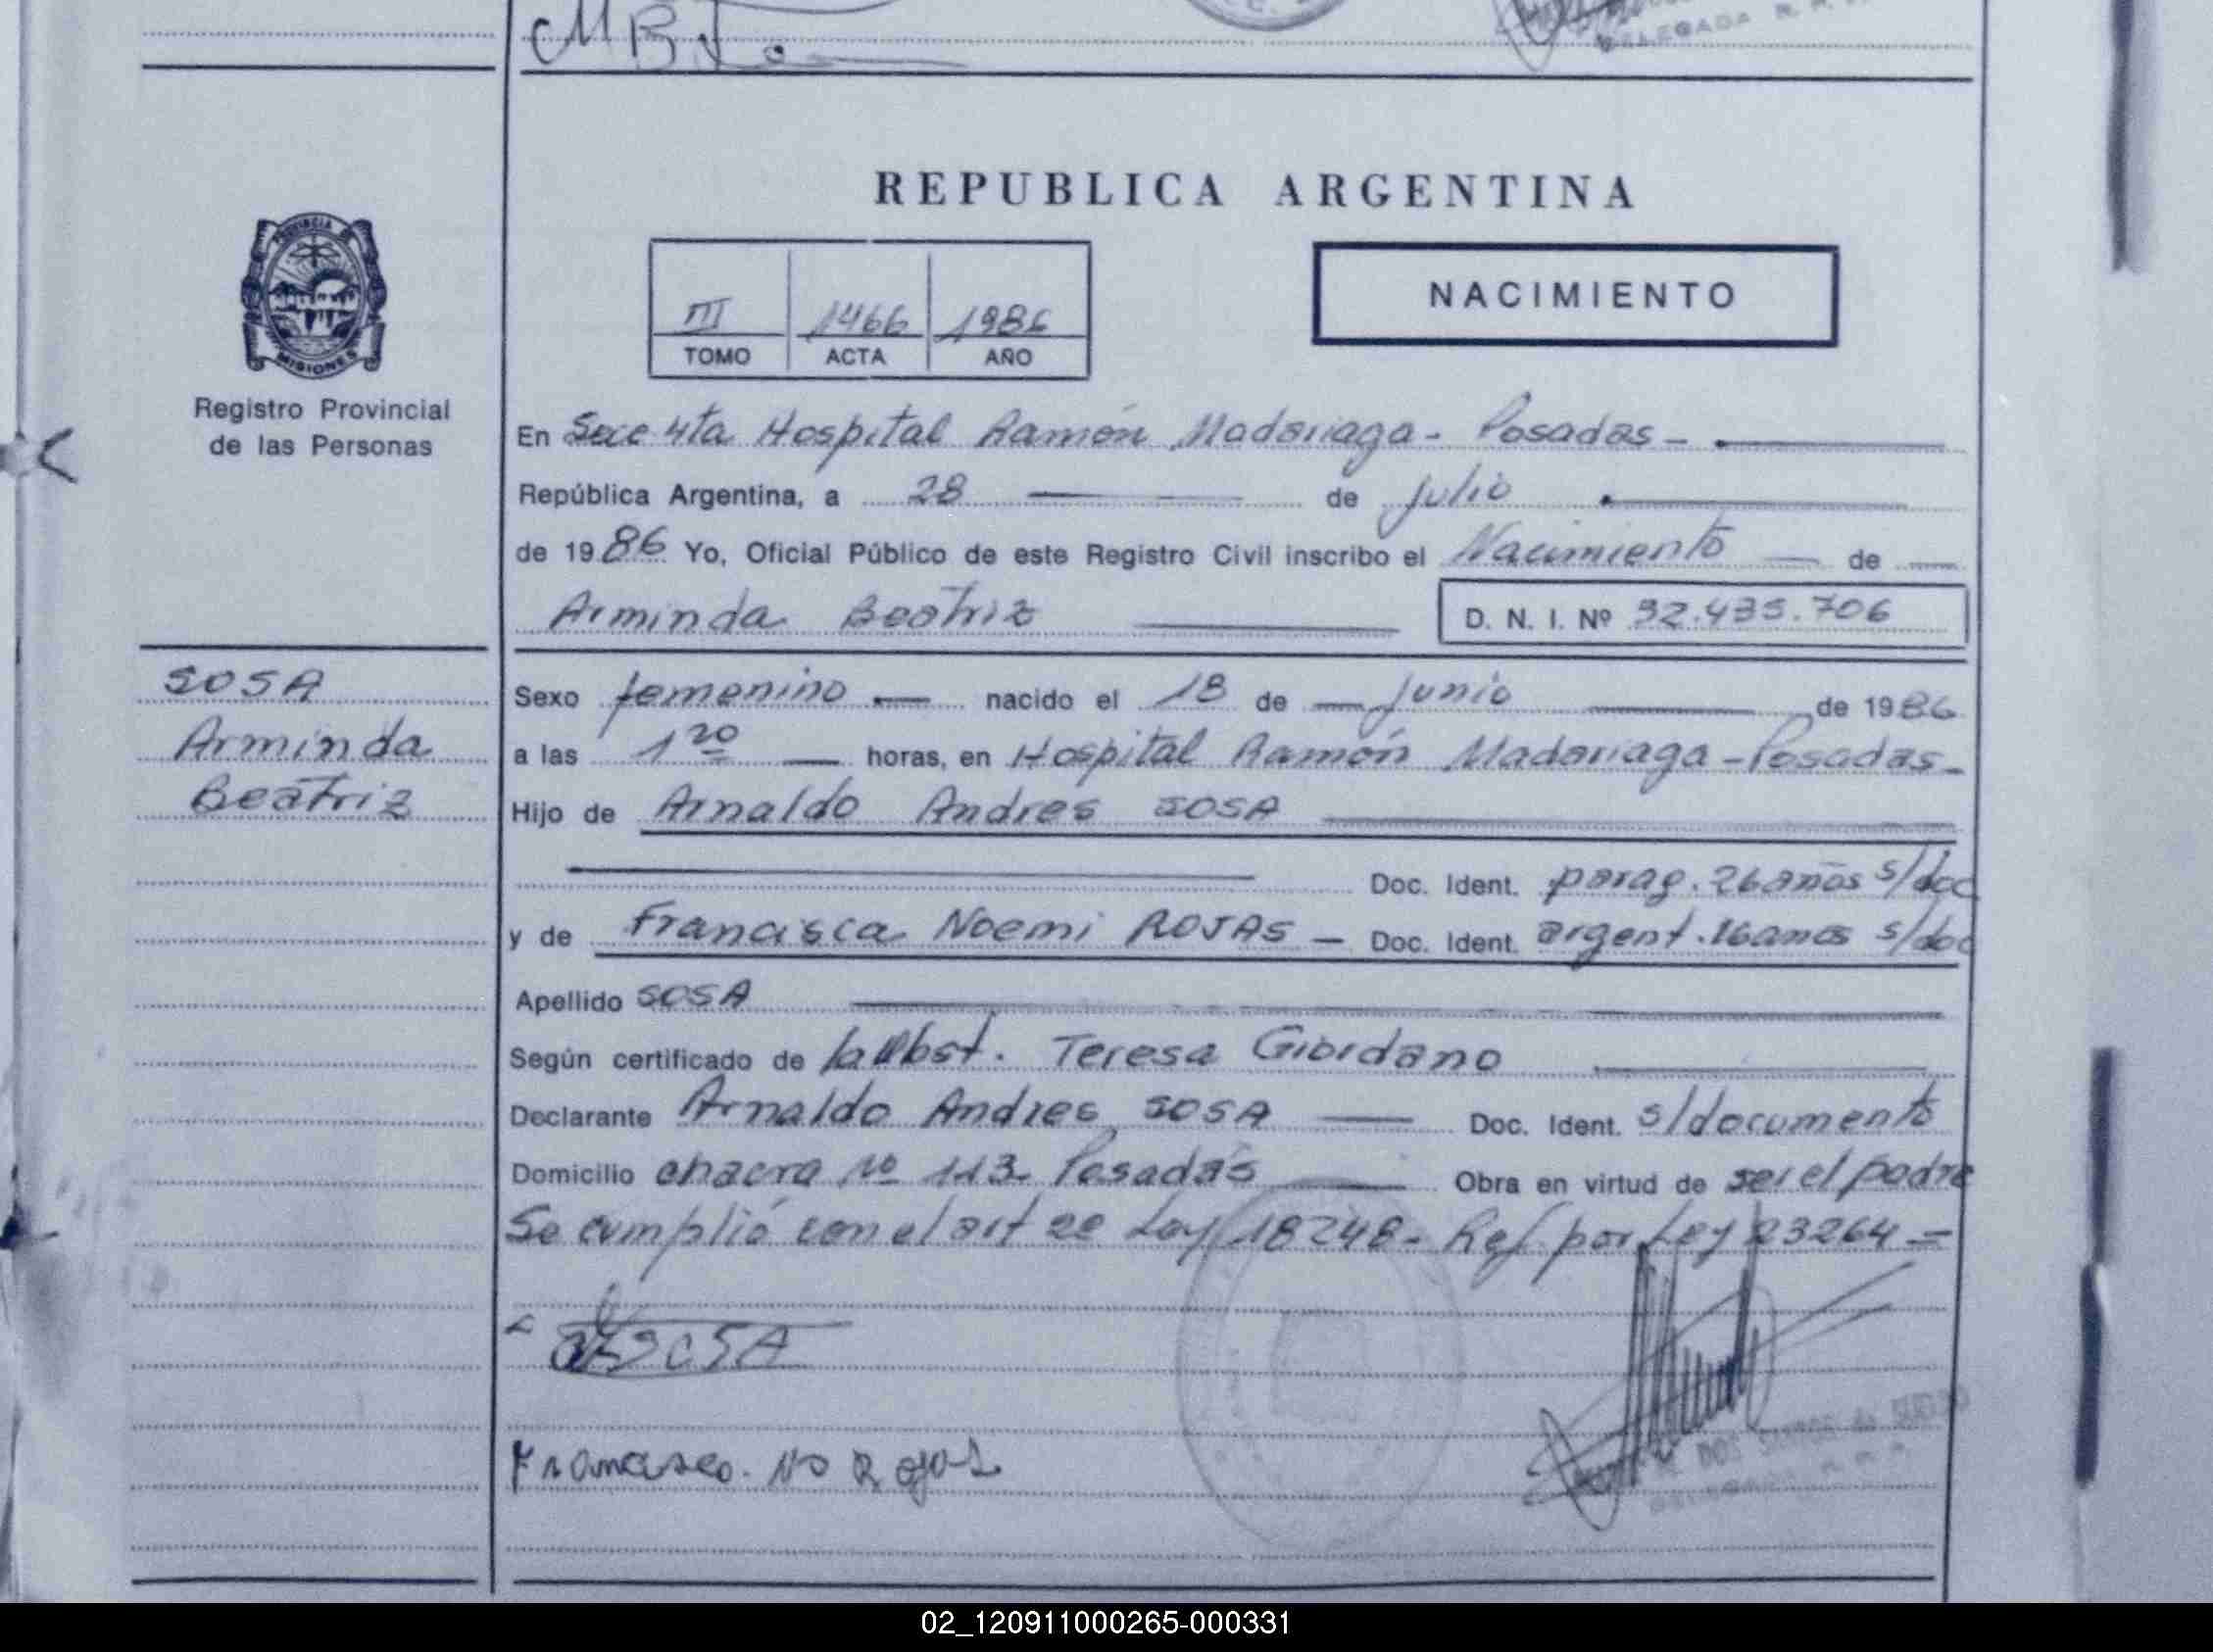 MBJo
DELEGADA R. P.
REPUBLICA ARGENTINA
PROVINCIA DE
MISIONES
Registro Provincial
de las Personas
III 1466 1986
TOMO ACTA AÑO
NACIMIENTO
En Secc 4ta Hospital Ramón Madariaga - Posadas -
República Argentina, a 28 de julio
de 1986 Yo, Oficial Público de este Registro Civil inscribo el Nacimiento de
Arminda Beatriz D. N. I. Nº 32.435.706
SOSA
Arminda
Beatriz
Sexo femenino nacido el 18 de junio de 1986
a las 1 20 horas, en Hospital Ramón Madariaga - Posadas -
Hijo de Arnaldo Andres SOSA
Doc. Ident. parag. 26 años s/doc
y de Francisca Noemi ROJAS - Doc. Ident. argent. 16 años s/doc
Apellido SOSA
Según certificado de la Obst. Teresa Giordano
Declarante Arnaldo Andres SOSA Doc. Ident. s/documento
Domicilio chacra Nº 113 Posadas Obra en virtud de ser el padre
Se cumplió con el art 2º Ley 18248 - Ref. por Ley 23264 =
SOSA
Francisco. No Rojas
DELEGADA R. P.
02_120911000265-000331